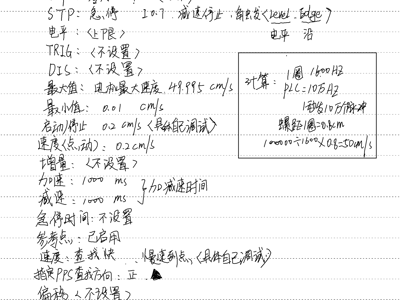 STP: 急停 I0.7. 减速停止. 触发<Level. Edge>
电平 沿
电平: <上限>
TRIG: <不设置>
DIS: <不设置>
最大值: 电机最大速度. 49.995 cm/s
最小值: 0.01 cm/s
启动/停止 0.2 cm/s <具体自己调试>
速度(点动): 0.2cm/s
增量: <不设置>
加速: 1000 ms
减速: 1000 ms
加减速时间
急停时间: 不设置
参考点: 已启用
速度: 查找快 慢速到点. <具体自己调试>
指定PPS查找方向: 正
偏移 <不设置>
计算: 1圈 1600HZ
PLC=10万HZ
1秒发10万脉冲
螺距1圈=0.8cm
100000÷1600×0.8=50cm/s